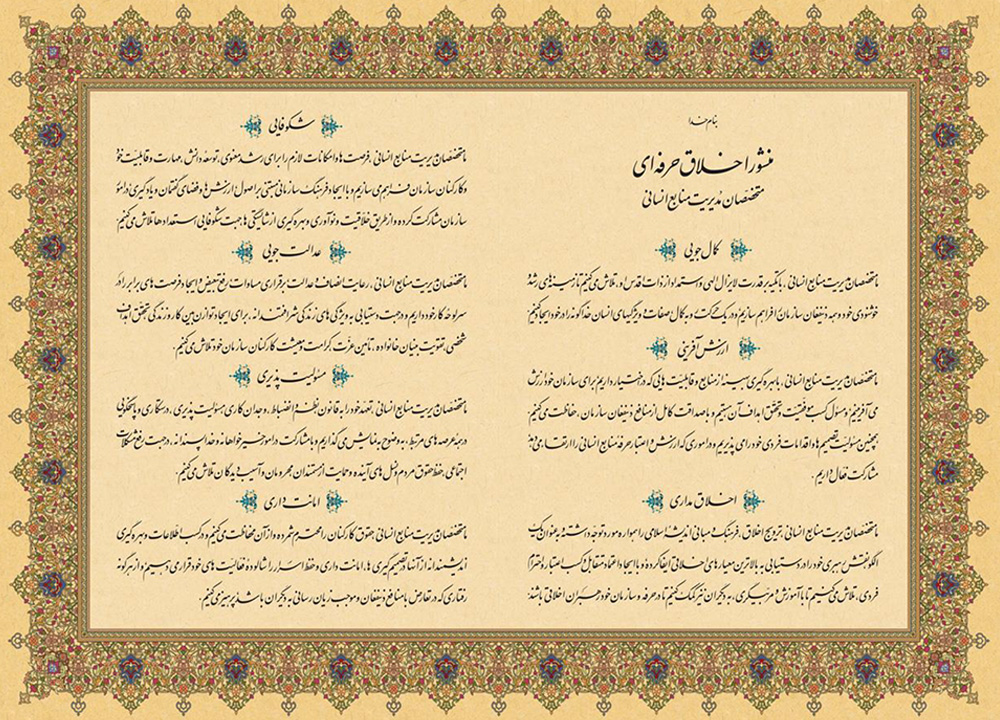 بنام خدا
منشور اخلاق حرفه ای
متخصصان مدیریت منابع انسانی
کمال جویی
ما متخصصان مدیریت منابع انسانی، با تکیه بر قدرت لایزال الهی و استمداد از ذات اقدس او، تلاش می کنیم تا زمینه های رشد
خوشنودی خود و همه ذینفعان سازمان را فراهم سازیم و در یک حرکت رو به کمال صفات و ویژگیهای انسان خداگونه را در خود ایجاد کنیم
ارزش آفرینی
ما متخصصان مدیریت منابع انسانی، با بهره گیری بهینه از منابع و قابلیت هایی که در اختیار داریم برای سازمان خود ارزش
می آفرینیم و مسئول کسب موفقیت و تحقق اهداف آن هستیم و با صداقت کامل از منافع ذینفعان سازمان، حفاظت می کنیم.
همچنین مسئولیت تصمیم ها و اقدامات فردی خود را می پذیریم و در اموری که ارزش و اعتبار حرفه منابع انسانی را ارتقا می دهد
مشارکت فعال داریم.
اخلاق مداری
ما متخصصان مدیریت منابع انسانی ترویج اخلاق، فرهنگ و مبانی اندیشه اسلامی را همواره مورد توجه داشته و به عنوان یک
الگو نقش رهبری خود را در دستیابی به بالاترین معیارهای اخلاقی ایفا کرده و با ایجاد اعتماد متقابل و کسب اعتبار و احترام
فردی، تلاش می کنیم تا با آموزش و مربیگری، به دیگران نیز کمک کنیم تا در حرفه و سازمان خود رهبران اخلاقی باشند.
شکوفایی
ما متخصصان مدیریت منابع انسانی، فرصت ها و امکانات لازم را برای رشد معنوی، توسعه دانش، مهارت و قابلیت خود
و کارکنان سازمان فراهم می سازیم و با ایجاد فرهنگ سازمانی مبتنی بر اصول ارزش ها و فضای گفتمان و یادگیری در امور
سازمان مشارکت کرده و از طریق خلاقیت و نوآوری و بهره گیری از شایستگی ها جهت شکوفایی استعدادها تلاش می کنیم.
عدالت جویی
ما متخصصان مدیریت منابع انسانی، رعایت انصاف و عدالت، برقراری مساوات رفع تبعیض و ایجاد فرصت های برابر را در
سرلوحه کار خود داریم و در جهت دستیابی به ویژگی های زندگی شرافتمندانه، برای ایجاد توازن بین کار و زندگی تحقق اهداف
شخصی، تقویت بنیان خانواده، تأمین عزت، کرامت و معیشت کارکنان سازمان خود تلاش می کنیم.
مسئولیت پذیری
ما متخصصان مدیریت منابع انسانی، تعهد خود را به قانون، نظم و انضباط، وجدان کاری، مسئولیت پذیری، درستکاری و پاسخگویی
در همه عرصه های مرتبط، به وضوح به نمایش می گذاریم و با مشارکت در امور خیرخواهانه و خداپسندانه، در جهت رفع مشکلات
اجتماعی، حفظ حقوق مردم و نسل های آینده و حمایت از مستمندان، محرومان و آسیب دیدگان تلاش می کنیم.
امانت داری
ما متخصصان مدیریت منابع انسانی حقوق کارکنان را محترم شمرده و از آن محافظت می کنیم و در کسب اطلاعات و بهره گیری
اندیشمندانه از آنها در تصمیم گیری ها، امانت داری و حفظ اسرار را شالوده فعالیت های خود قرار می دهیم و از هرگونه
رفتاری که در تعارض با منافع ذینفعان و موجب زیان رسانی به دیگران باشد پرهیز می کنیم.